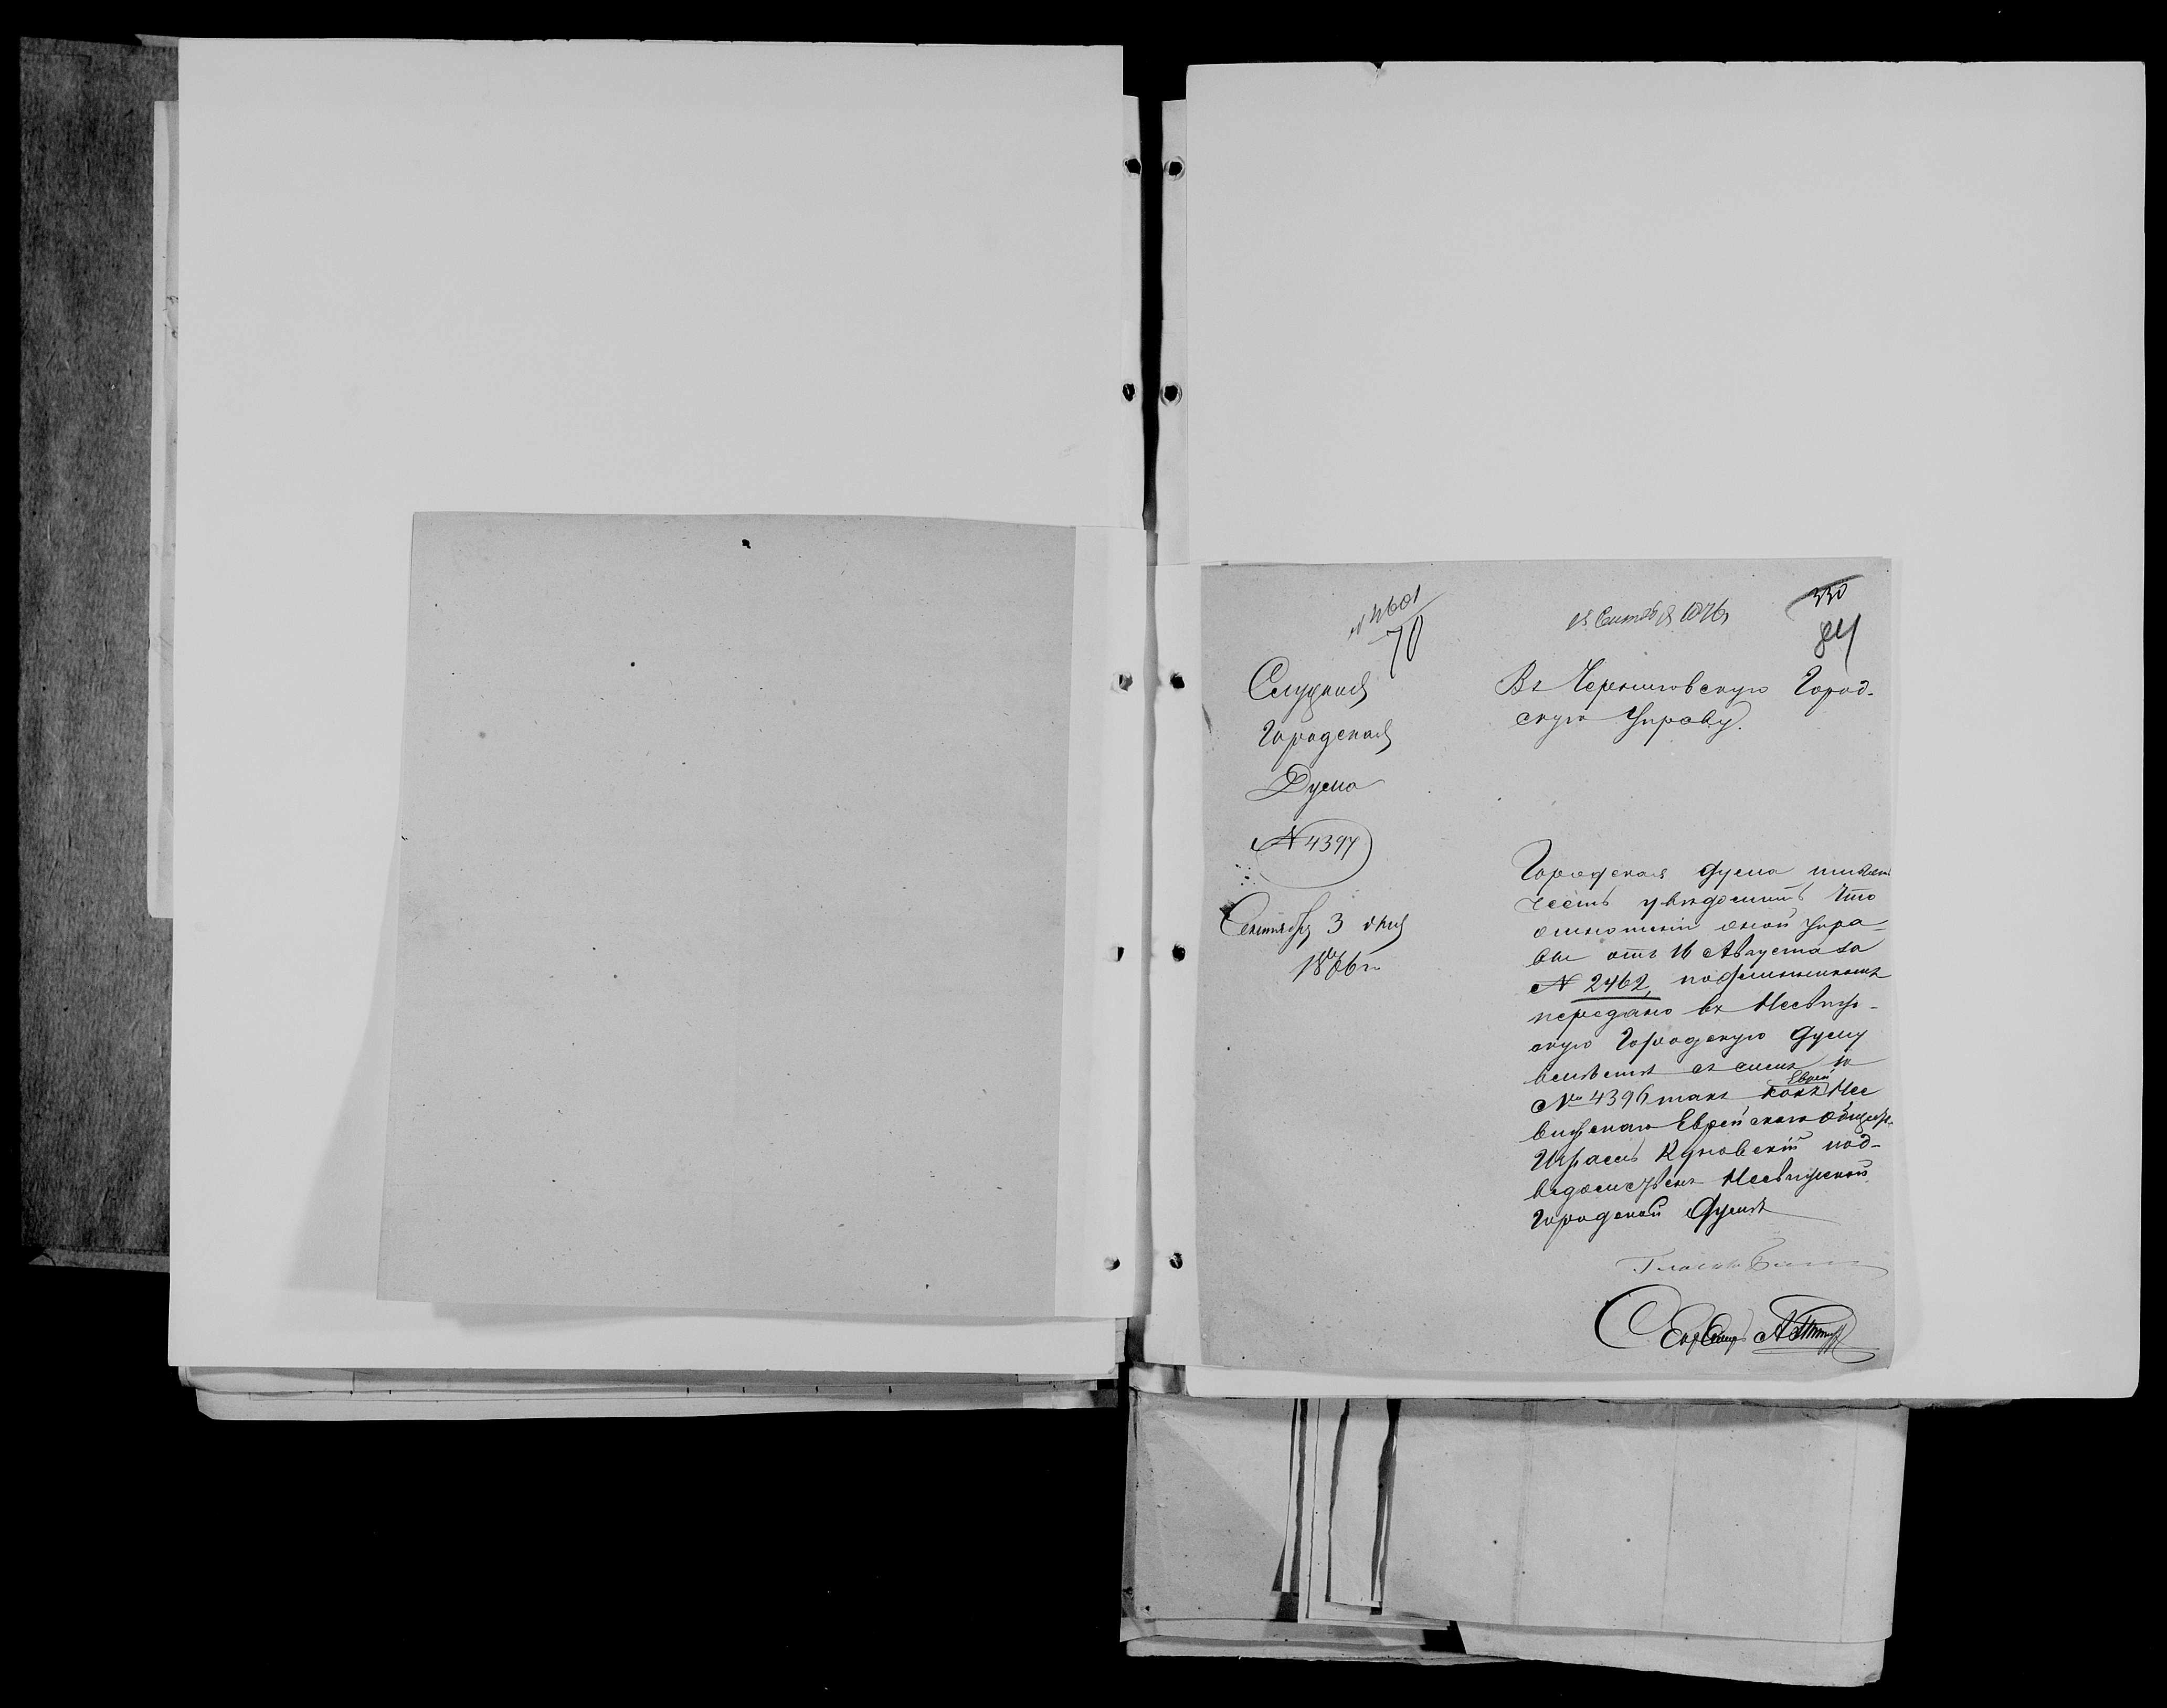 70
84
Слуцкая
Городская
Дума
№ 4397
Сентября 3 дня
1876 г.
Въ Черниговскую Город-
скую Управу.
Городская Дума имѣетъ
честь увѣдомить что
отношеніе оной Упра-
вы отъ 16 Августа за
№ 2462,
передано въ Несвиж-
скую Городскую Думу
вмѣстѣ съ симъ за
№ 4396 такъ какъ Еврей Нес
вижскаго Еврейскаго общества
Израель Куновскій под-
вѣдомственъ Несвижской
Городской Думѣ